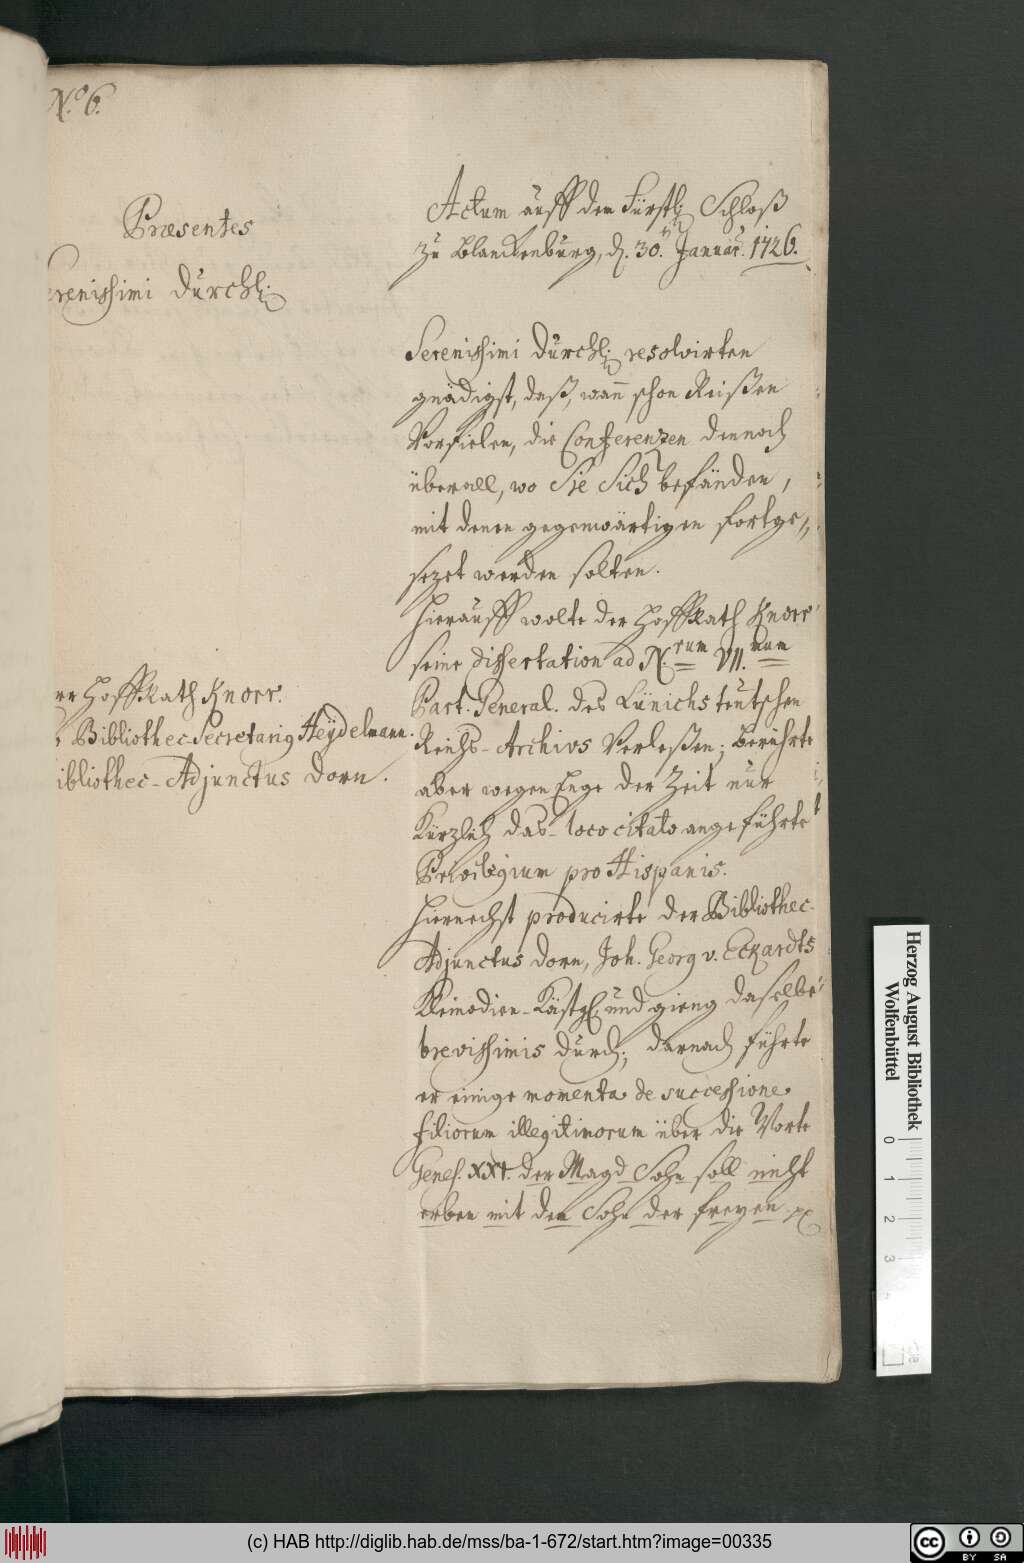 N.º 6.
Præsentes
erenissimi Durchl:
rr Hoff-Rath Knorr.
Bibliothec Secretarig Heydelmann.
ibliothec-Adjunctus Dorn.
Actum auff dem Fürstl: Schloß
zu Blanckenburg, d. 30. Januar. 1726.
Serenissimi Durchl: resolvirten
gnädigst, daß, wañ schon Reißen
Vorfielen, die Conferenzen dennoch
überall, wo Sie Sich befänden,
mit denen gegenwärtigen fortge-
sezet werden solten.
Hierauff wolte der Hoff-Rath Knorr
seine Dissertation ad N.rum VII.num
Part. General. des Lünichs teutschen
Reichs-Archivs Verleßen; Berührte
aber wegen Enge der Zeit nur
Kürzlich das loco citato angeführte
Privilegium pro Hispanis.
Hiernechst producirte der Bibliothec-
Adjunctus Dorn, Joh. Georg v. Eckardts
Kleinodien-Kästgl, und gieng daselbe
brevissimis durch; darnach führte
er einige momenta de successione
filiorum illegitimorum über die Worte
Genes. XXI. der Magd Sohn soll nicht
erben mit dem Sohn der freyen
Herzog August Bibliothek
Wolfenbüttel
0
1
2
3
(c) HAB http://diglib.hab.de/mss/ba-1-672/start.htm?image=00335
cc
BY SA